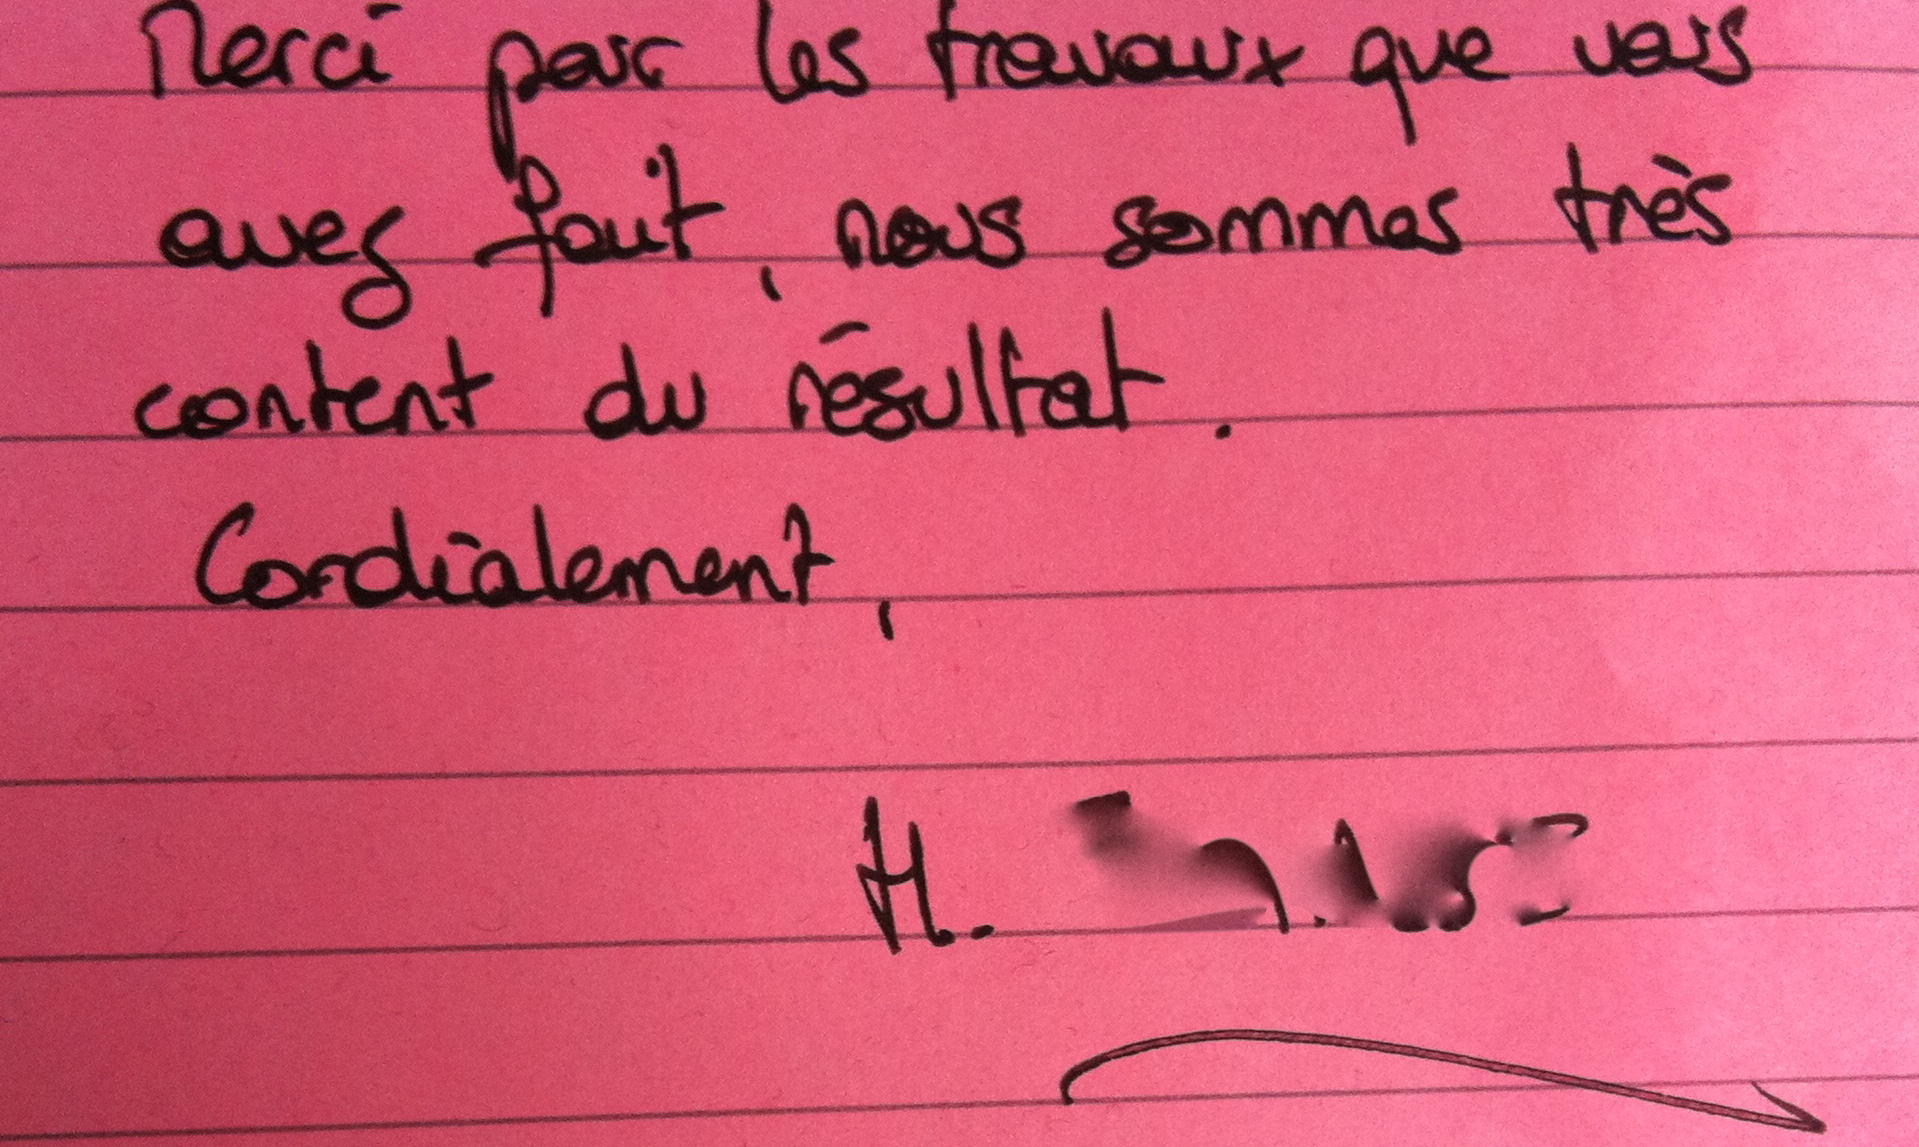 Merci pour les travaux que vous
avez fait, nous sommes très
content du résultat.
Cordialement,
H.